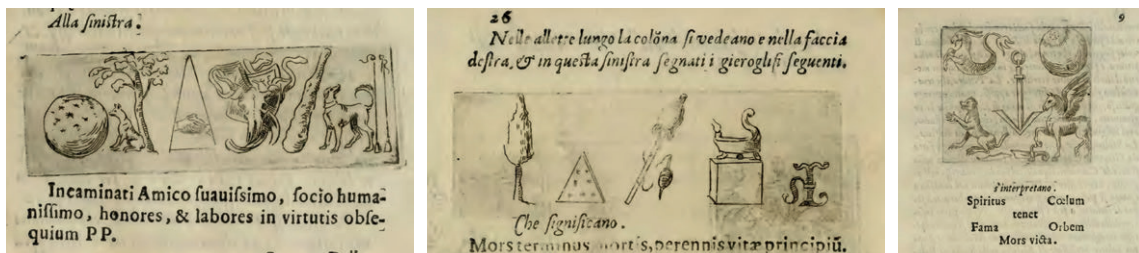 Alla ſiniſtra.
Incaminati Amico ſuauiſsimo, ſocio huma-
niſſimo, honores, & labores in virtutis obſe-
quium PP.
26
Nelle allette lungo la colõna ſi vedeano e nella faccia
deſtra, & in queſta ſiniſtra ſegnati i gieroglifi ſeguenti.
Che ſignificano.
Mors terminus mortis, perennis vitæ principiũ.
9
s'interpretano.
Spiritus Cœlum
tenet
Fama Orbem
Mors victa.